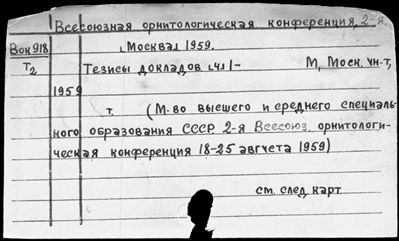 Всесоюзная орнитологическая конференция, 2-я.
Вок918 Москва. 1959.
Т2 Тезисы докладов ч. 1- М, Моск. ун-т,
1959
т. (М-во высшего и среднего специаль-
ного образования СССР 2-я Всесоюз. орнитологи-
ческая конференция 18-25 августа 1959)
см. след. карт.